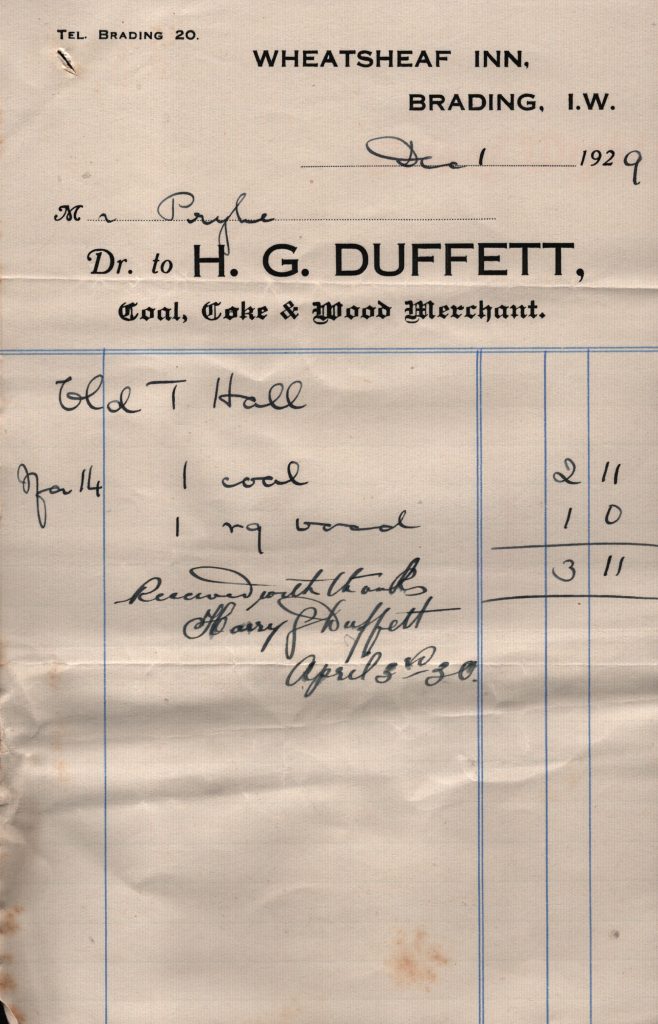 TEL. BRADING 20.
WHEATSHEAF INN,
BRADING, I.W.
Dec 1 1929
Mr Pryke
Dr. to H. G. DUFFETT,
Coal, Coke & Wood Merchant.
Old T Hall
Nov 14 1 coal 2 11
1 wood 1 0
3 11
Received with thanks
Harry G Duffett
April 3rd 30.